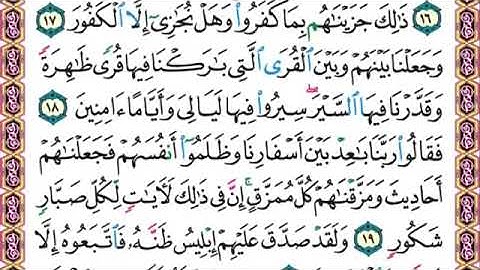 ١٦ ذَٰلِكَ جَزَيْنَاهُم بِمَا كَفَرُوا۟ وَهَلْ نُجَازِىٓ إِلَّا ٱلْكَفُورَ ١٧
وَجَعَلْنَا بَيْنَهُمْ وَبَيْنَ ٱلْقُرَى ٱلَّتِى بَارَكْنَا فِيهَا قُرًى ظَاهِرَةً
وَقَدَّرْنَا فِيهَا ٱلسَّيْرَ ۖ سِيرُوا۟ فِيهَا لَيَالِىَ وَأَيَّامًا ءَامِنِينَ ١٨
فَقَالُوا۟ رَبَّنَا بَاعِدْ بَيْنَ أَسْفَارِنَا وَظَلَمُوٓا۟ أَنفُسَهُمْ فَجَعَلْنَاهُمْ
أَحَادِيثَ وَمَزَّقْنَاهُمْ كُلَّ مُمَزَّقٍ ۚ إِنَّ فِى ذَٰلِكَ لَآيَاتٍ لِّكُلِّ صَبَّارٍ
شَكُورٍ ١٩ وَلَقَدْ صَدَّقَ عَلَيْهِمْ إِبْلِيسُ ظَنَّهُۥ فَٱتَّبَعُوهُ إِلَّا